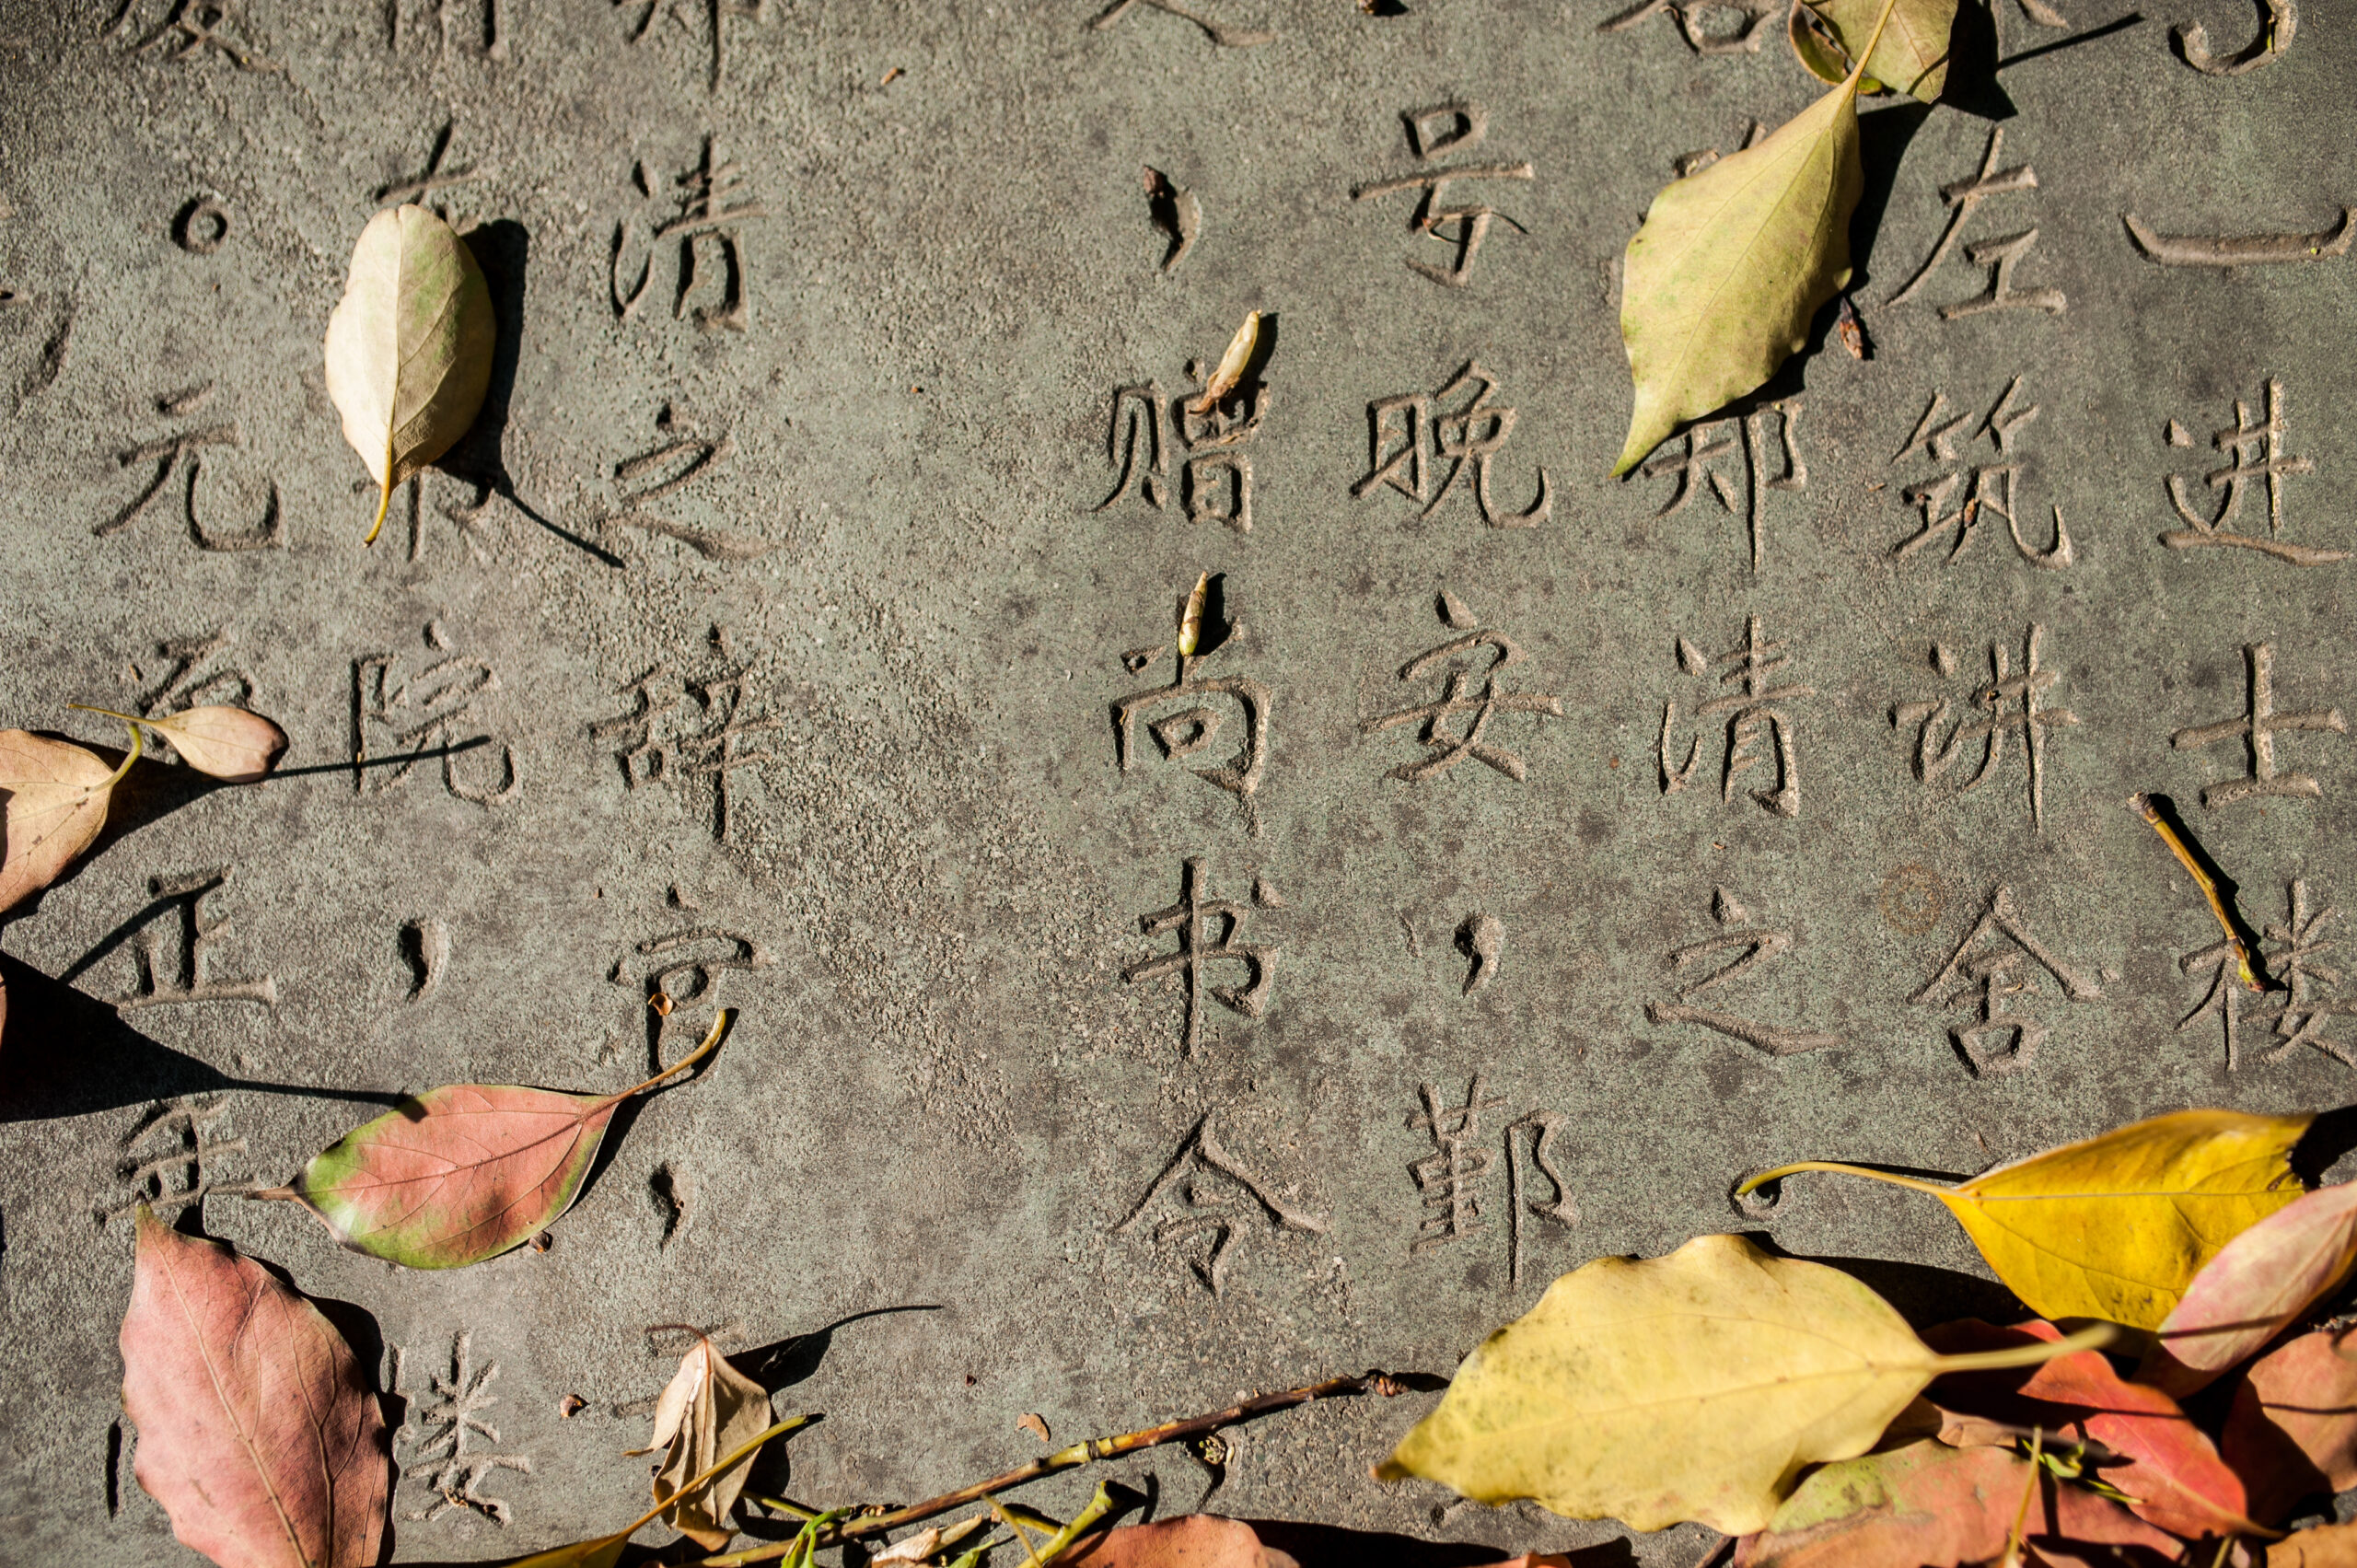 一进士楼
左筑讲舍
郑清之。
号晚安，鄞
，赠尚书令
清之辞官，
院，楼
。元至正年